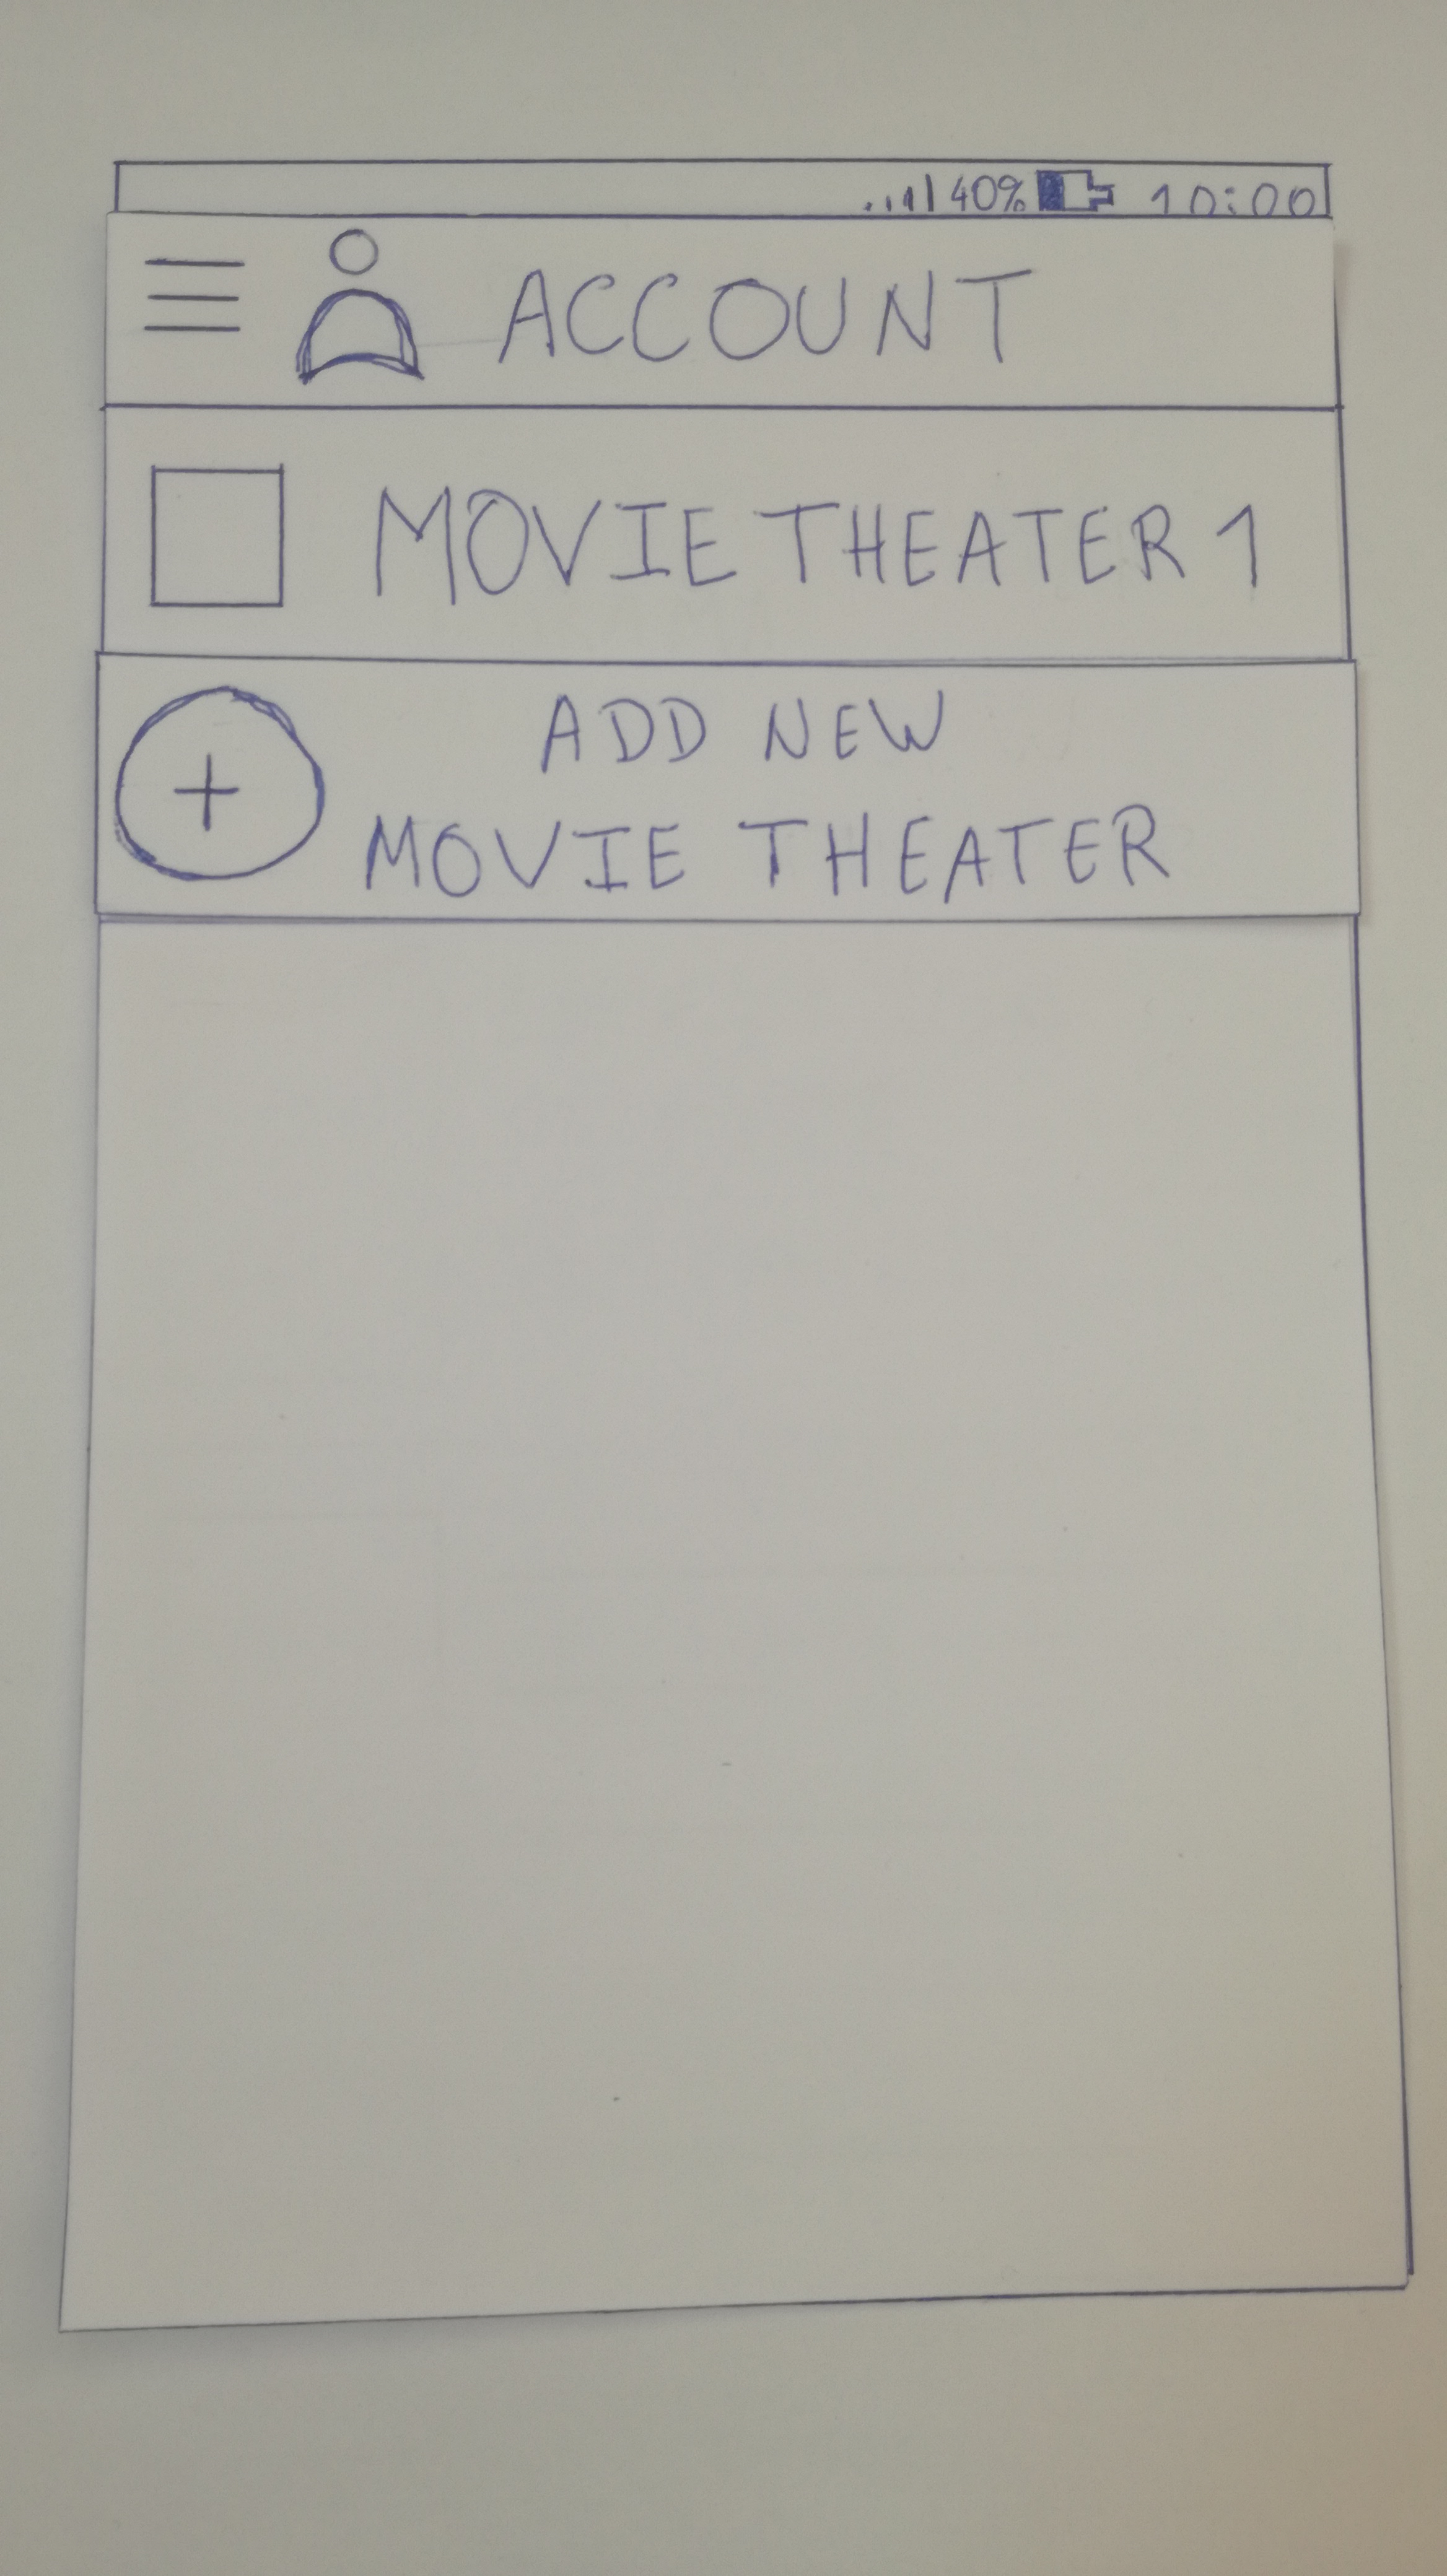 40% 10:00
ACCOUNT
MOVIE THEATER 1
ADD NEW
MOVIE THEATER